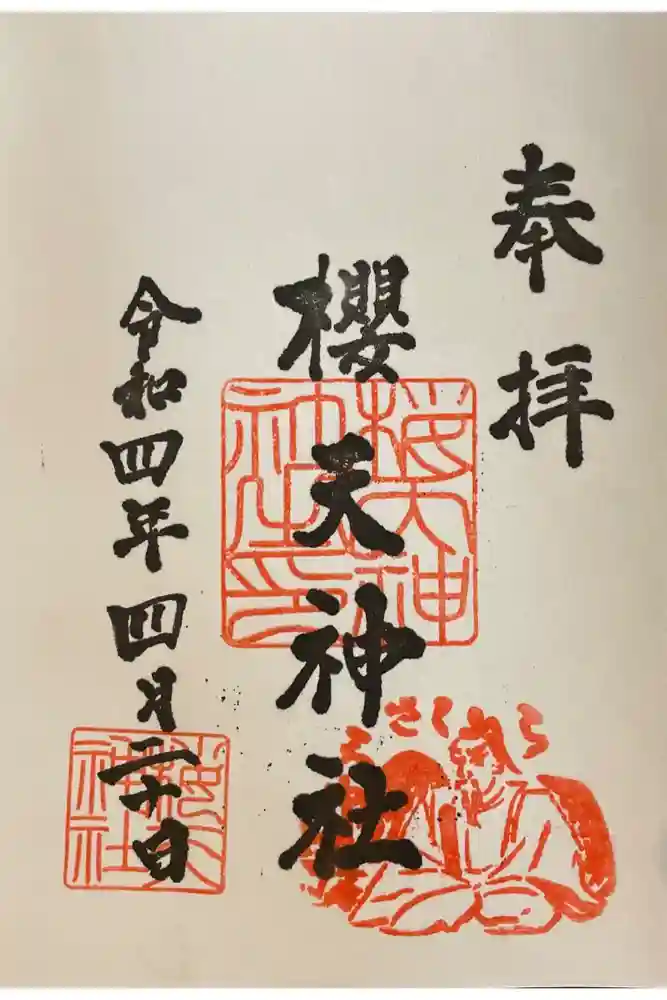 奉拝
櫻天神社
櫻天神
社之印
令和四年四月二十日